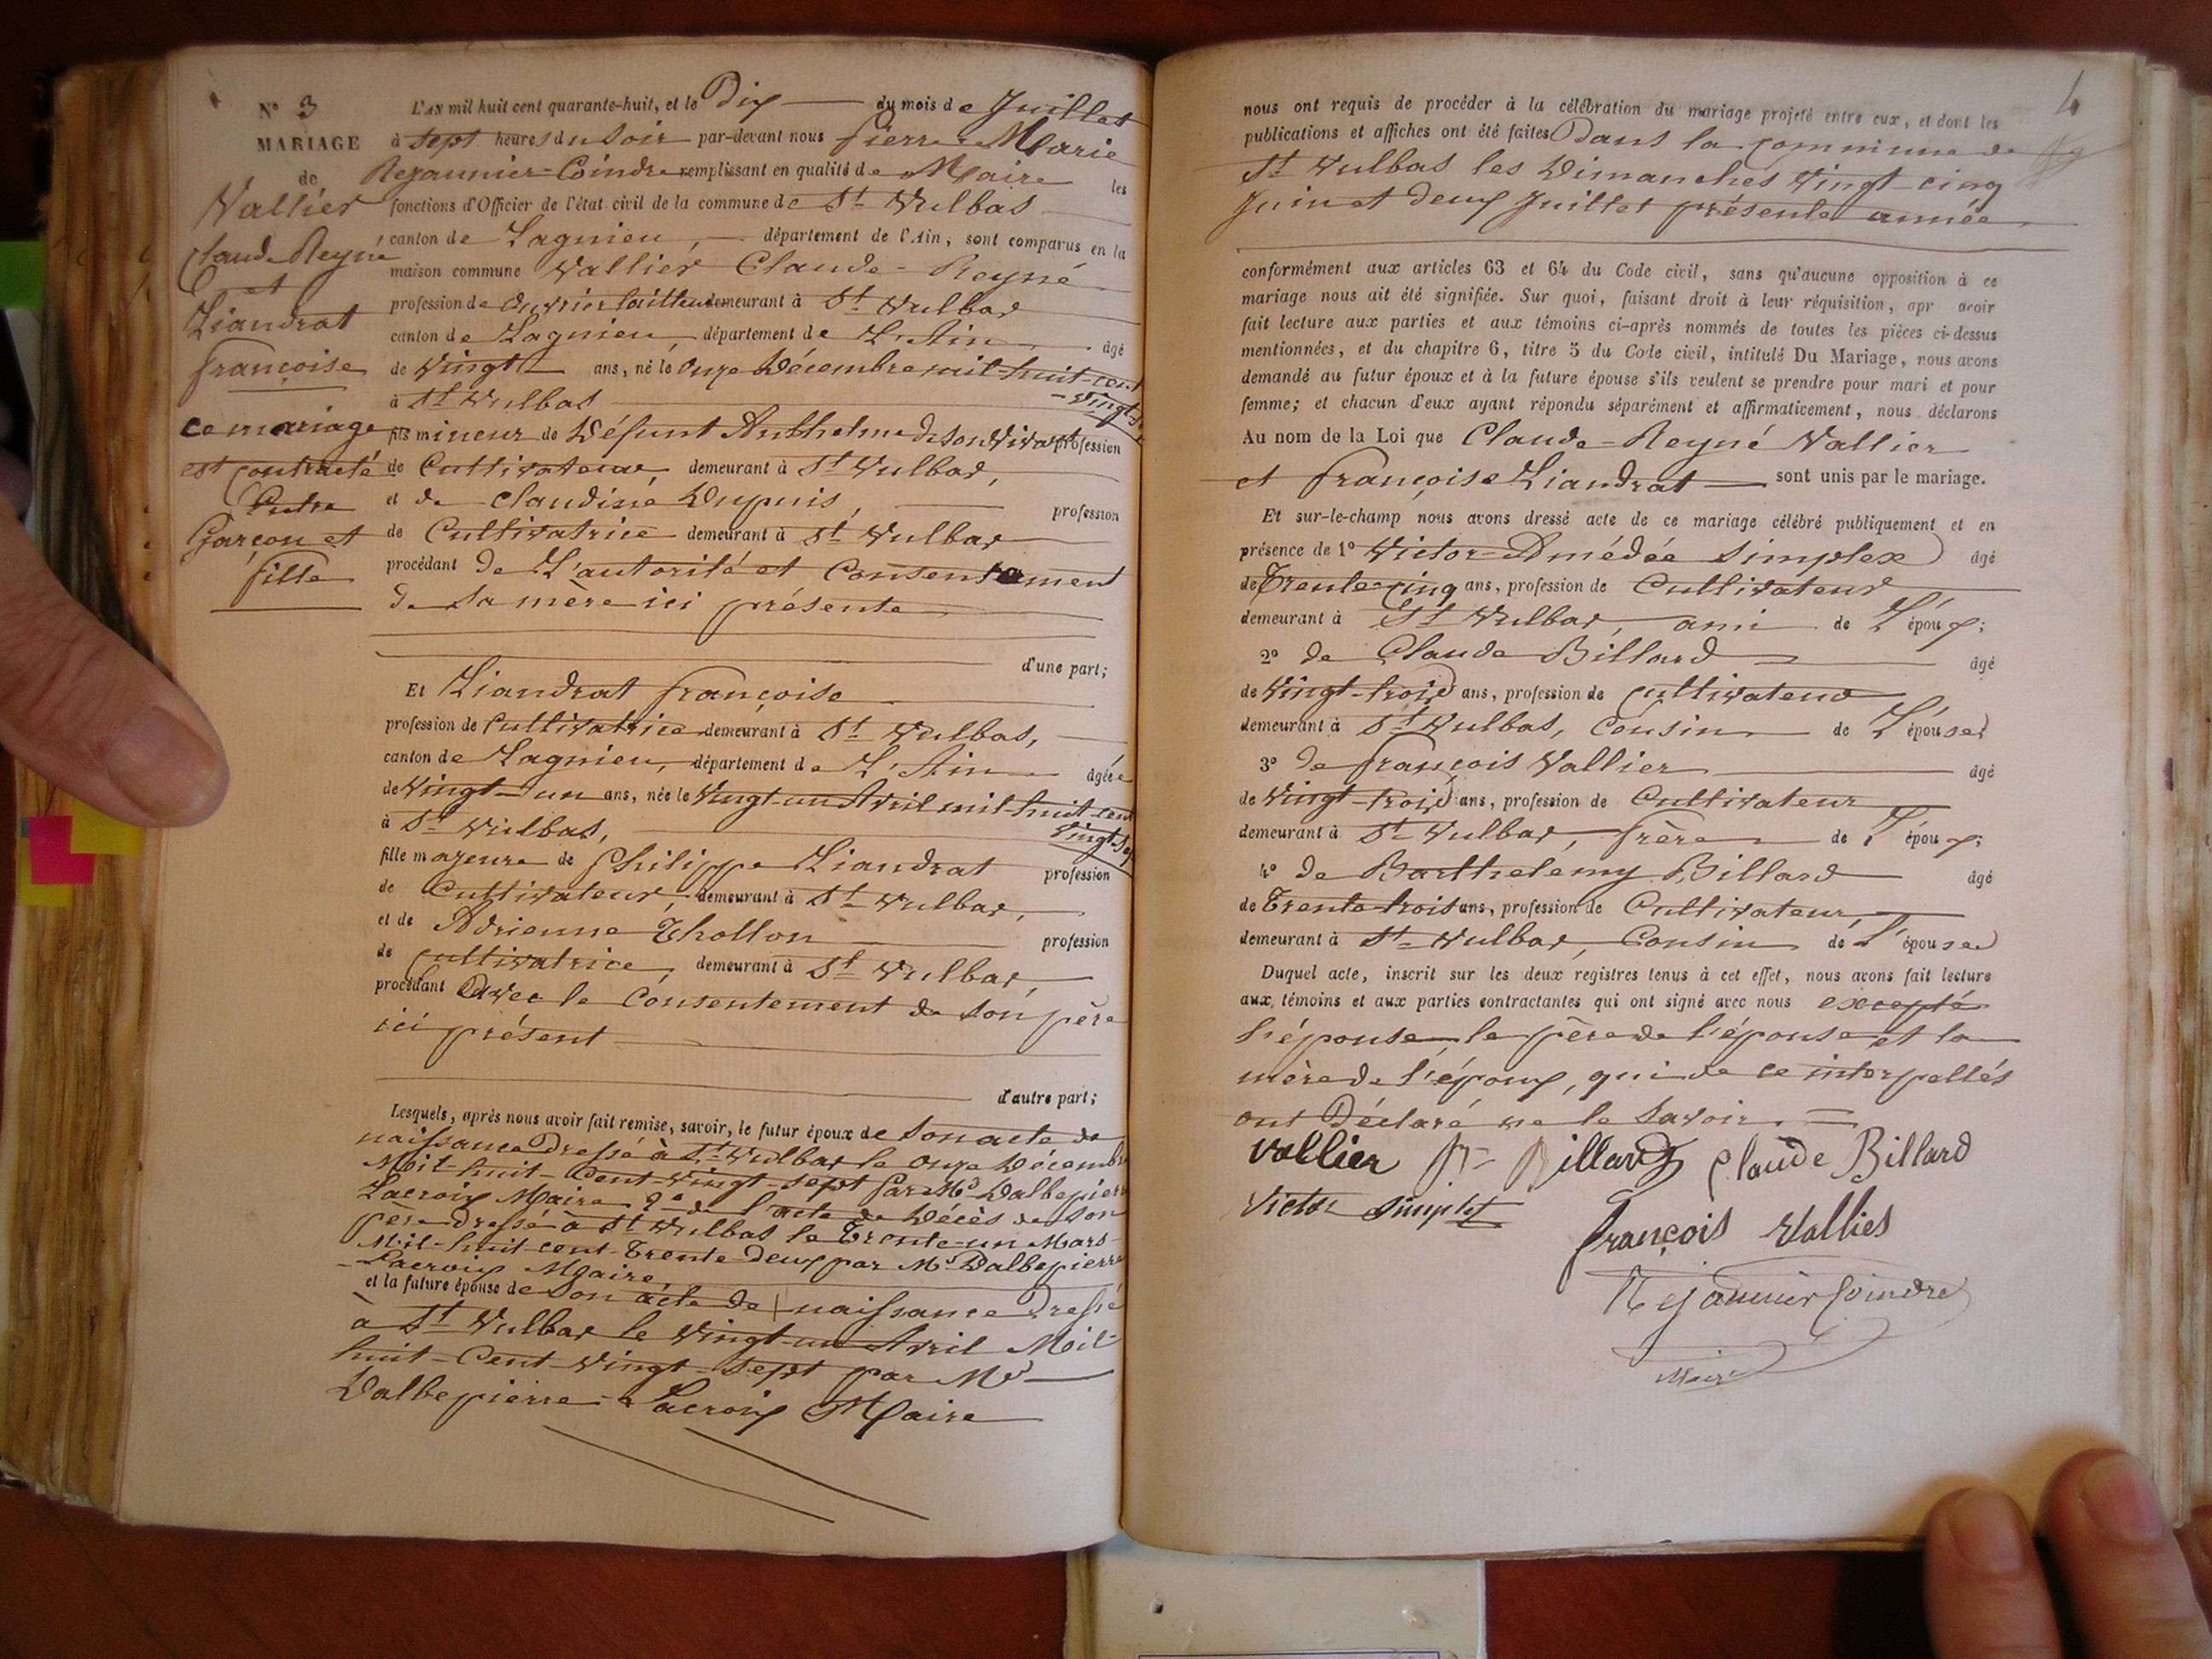 N° 3
MARIAGE
de
Vallier
Claude Reyné
et
Liandrat
françoise
ce mariage
est contracté
Entre
Garçon et
fille
L'AN mil huit cent quarante-huit, et le Dix du mois de Juillet
à sept heures du soir par-devant nous Pierre Marie
Rejaunier-Coindre remplissant en qualité de Maire les
fonctions d'Officier de l'état civil de la commune de St Vulbas
canton de Lagnieu, département de l'Ain, sont comparus en la
maison commune Vallier Claude-Reyné
profession de Ouvrier tailleur demeurant à St Vulbas
canton de Lagnieu, département de L'Ain âgé
de Vingt ans, né le Onze Décembre mil-huit-cent
-Vingt-
à St Vulbas
fils mineur de Défunt Anthelme de son Vivant profession
de Cultivateur, demeurant à St Vulbas,
et de Claudine Dupuis, profession
de Cultivatrice demeurant à St Vulbas
procédant De L'autorité et Consentement
de sa mère ici présente
d'une part;
Et Liandrat françoise
profession de Cultivatrice demeurant à St Vulbas,
canton de Lagnieu, département de L'Ain âgée
de Vingt-un ans, née le Vingt-un Avril mil-huit-cent
Vingt-sep
à St Vulbas,
fille majeure de Philippe Liandrat profession
de Cultivateur, demeurant à St Vulbas,
et de Adrienne Thollon profession
de Cultivatrice, demeurant à St Vulbas,
procédant avec le Consentement de son père
ici présent
d'autre part;
Lesquels, après nous avoir fait remise, savoir, le futur époux de Son acte de
naissance Dressé à St Vulbas le Onze Décembre
Mil-huit-Cent-Vingt-sept par Mr Dalbepierre
Lacroix Maire 2e de l'acte de Décès de Son
père dressé à St Vulbas le Trente-un Mars
Mil-huit-cent-Trente-Deux par Mr Dalbepierre
Lacroix Maire,
et la future épouse de Son acte de naissance Dressé
à St Vulbas le Vingt-un Avril Mil-
huit-Cent-Vingt-sept par Mr
Dalbepierre-Lacroix Maire
4
nous ont requis de procéder à la célébration du mariage projeté entre eux, et dont les
publications et affiches ont été faites Dans la commune de
St Vulbas les Dimanches Vingt-cinq
Juin et deux Juillet présente année
conformément aux articles 63 et 64 du Code civil, sans qu'aucune opposition à ce
mariage nous ait été signifiée. Sur quoi, faisant droit à leur réquisition, apr avoir
fait lecture aux parties et aux témoins ci-après nommés de toutes les pièces ci-dessus
mentionnées, et du chapitre 6, titre 5 du Code civil, intitulé Du Mariage, nous avons
demandé au futur époux et à la future épouse s'ils veulent se prendre pour mari et pour
femme; et chacun d'eux ayant répondu séparément et affirmativement, nous déclarons
Au nom de la Loi que Claude-Reyné Vallier
et françoise Liandrat sont unis par le mariage.
Et sur-le-champ nous avons dressé acte de ce mariage célébré publiquement et en
présence de 1° Victor-Amédée Simplex âgé
de Trente-cinq ans, profession de Cultivateur
demeurant à St Vulbas, ami de L'époux;
2° de Claude Billard âgé
de Vingt-trois ans, profession de Cultivateur
demeurant à St Vulbas, Cousin de L'épouse
3° de françois Vallier âgé
de Vingt-trois ans, profession de Cultivateur
demeurant à St Vulbas, frère de l'époux;
4° de Barthelemy Billard âgé
de Trente-trois ans, profession de Cultivateur,
demeurant à St Vulbas, Cousin de L'épouse
Duquel acte, inscrit sur les deux registres tenus à cet effet, nous avons fait lecture
aux témoins et aux parties contractantes qui ont signé avec nous excepté
l'épouse, le père de l'épouse et la
mère de l'époux, qui de ce interpellés
ont Déclaré ne le savoir.
Vallier Bmy Billard Claude Billard
Victor Simplex
François Vallies
Rejaunier Coindre
Maire